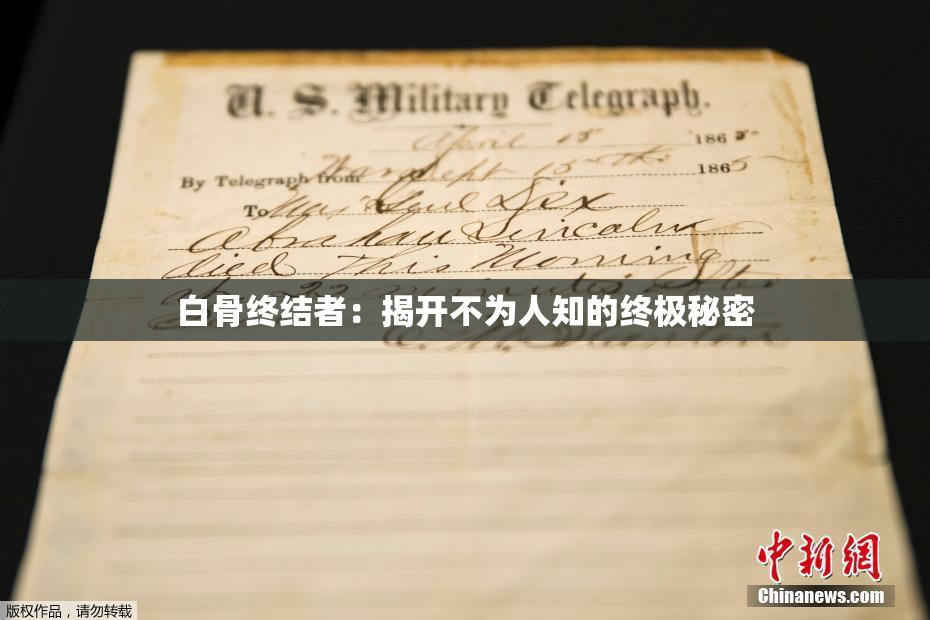 U. S. Military Telegraph.
April 15 1865
By Telegraph from War Dept 15th 1865
To Maj Genl Dix
Abraham Lincoln
died This Morning
at 22 minutes after
白骨终结者：揭开不为人知的终极秘密
E. M. Stanton
中新網
Chinanews.com
版权作品，请勿转载